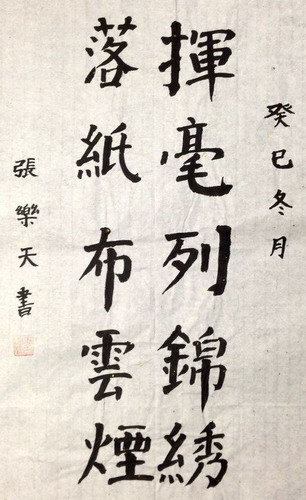 癸巳冬月
揮毫列錦綉
落紙布雲煙
張樂天書